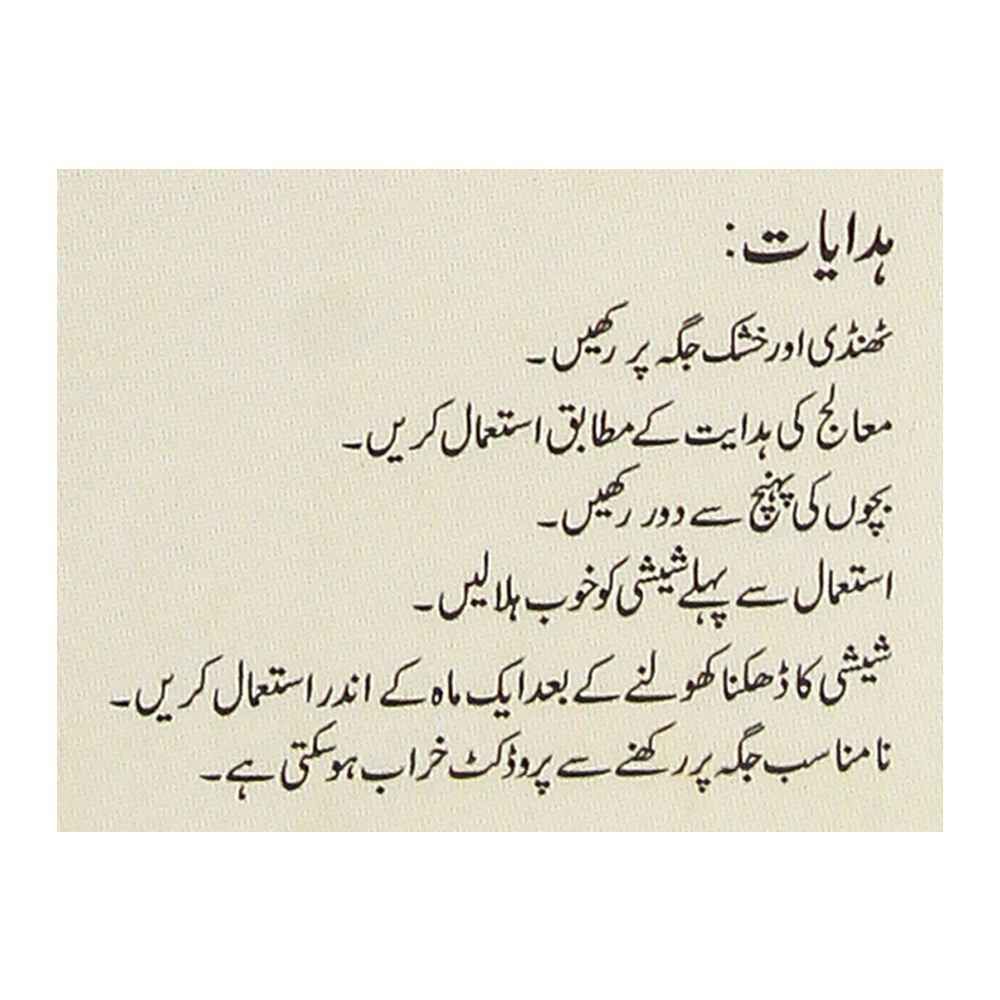 ہدایات:
ٹھنڈی اور خشک جگہ پر رکھیں۔
معالج کی ہدایت کے مطابق استعمال کریں۔
بچوں کی پہنچ سے دور رکھیں۔
استعمال سے پہلے شیشی کو خوب ہلا لیں۔
شیشی کا ڈھکنا کھولنے کے بعد ایک ماہ کے اندر استعمال کریں۔
نامناسب جگہ پر رکھنے سے پروڈکٹ خراب ہوسکتی ہے۔